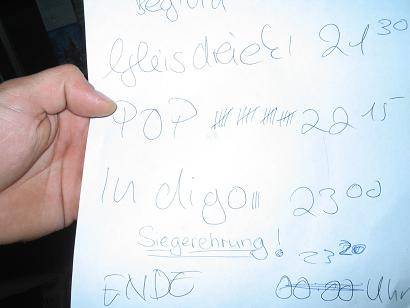 Gleisdreieck! 21³⁰
POP 22¹⁵
Indigo 23⁰⁰
Siegerehrung! 23²⁰
ENDE 00:00 Uhr